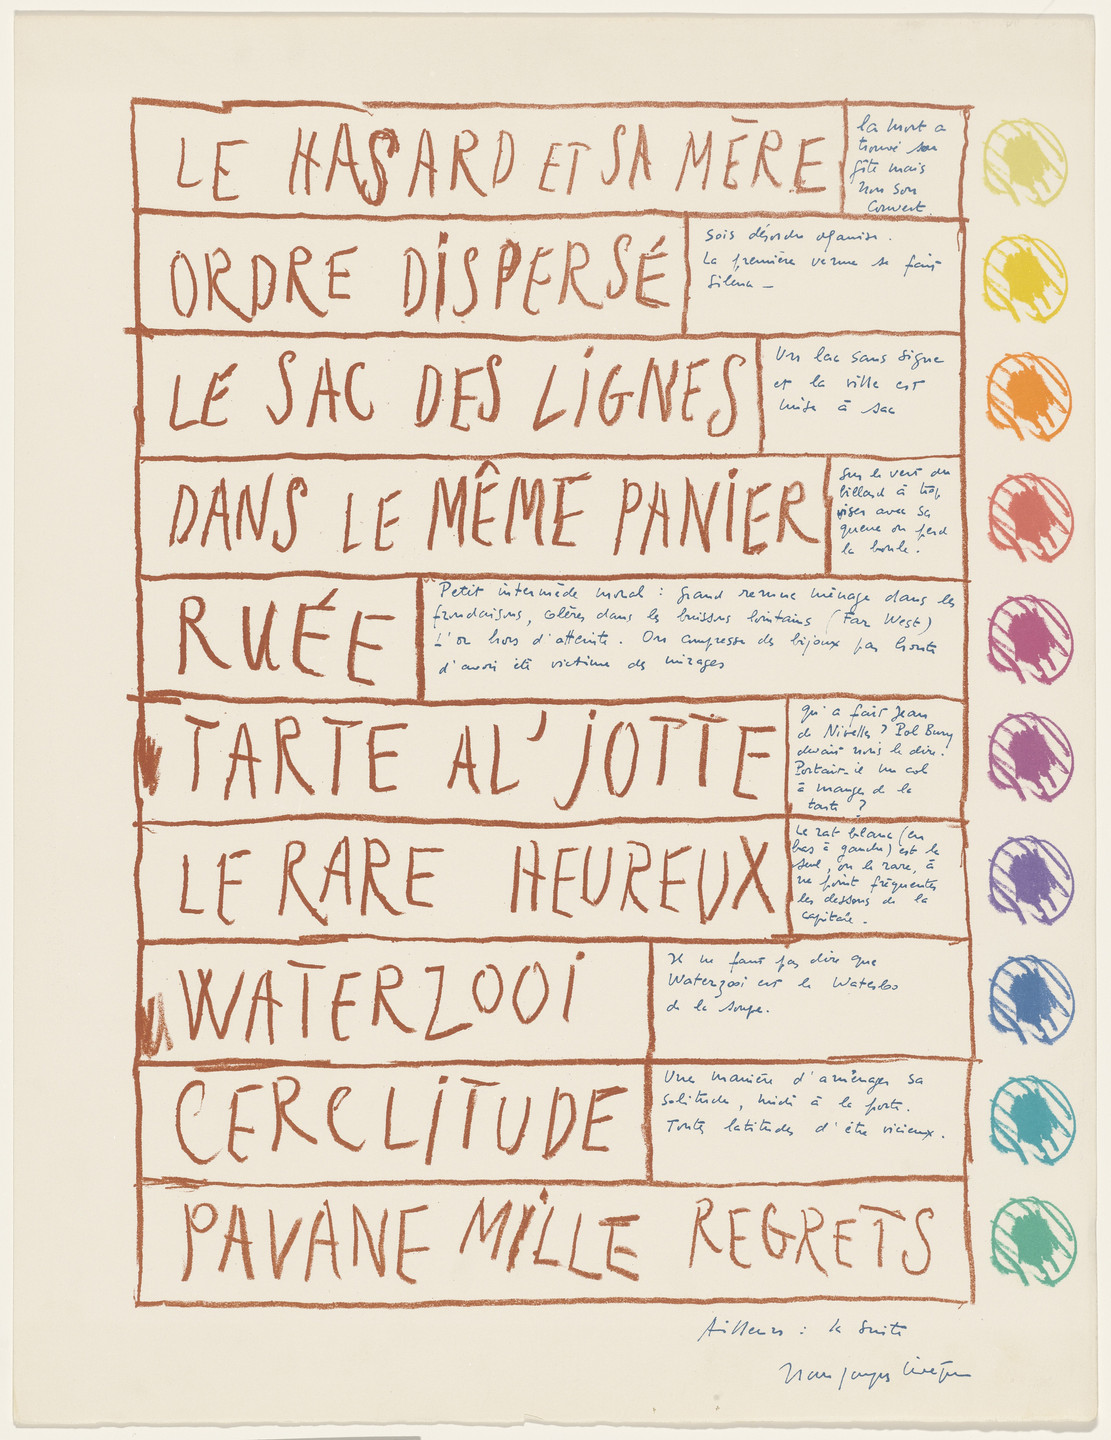 LE HASARD ET SA MÈRE
la mort a
trouvé son
gîte mais
non son
couvert.
ORDRE DISPERSÉ
Sois désordre organisé.
La première verme se fait
silence —
LE SAC DES LIGNES
Un lac sans signe
et la ville est
mise à sac
DANS LE MÊME PANIER
Sur le vert du
billard à trop
viser avec sa
queue on perd
la boule.
RUÉE
Petit intermède moral : grand remue ménage dans les
frondaisons, colères dans les buissons lointains (Far West)
L'or hors d'atteinte. On compresse des bijoux par honte
d'avoir été victime des mirages
TARTE AL' JOTTE
qu'a fait Jean
de Nivelles ? Pol Bury
devait nous le dire.
Portait-il un col
à manger de la
tarte ?
LE RARE HEUREUX
Le rat blanc (en
bas à gauche) est le
seul, ou le rare, à
ne point fréquenter
les dessous de la
capitale.
WATERZOOI
Il ne faut pas dire que
Waterzooi est le Waterloo
de la soupe.
CERCLITUDE
Une manière d'aménager sa
solitude, midi à la porte.
Toutes latitudes d'être vicieux.
PAVANE MILLE REGRETS
Ailleurs : la suite